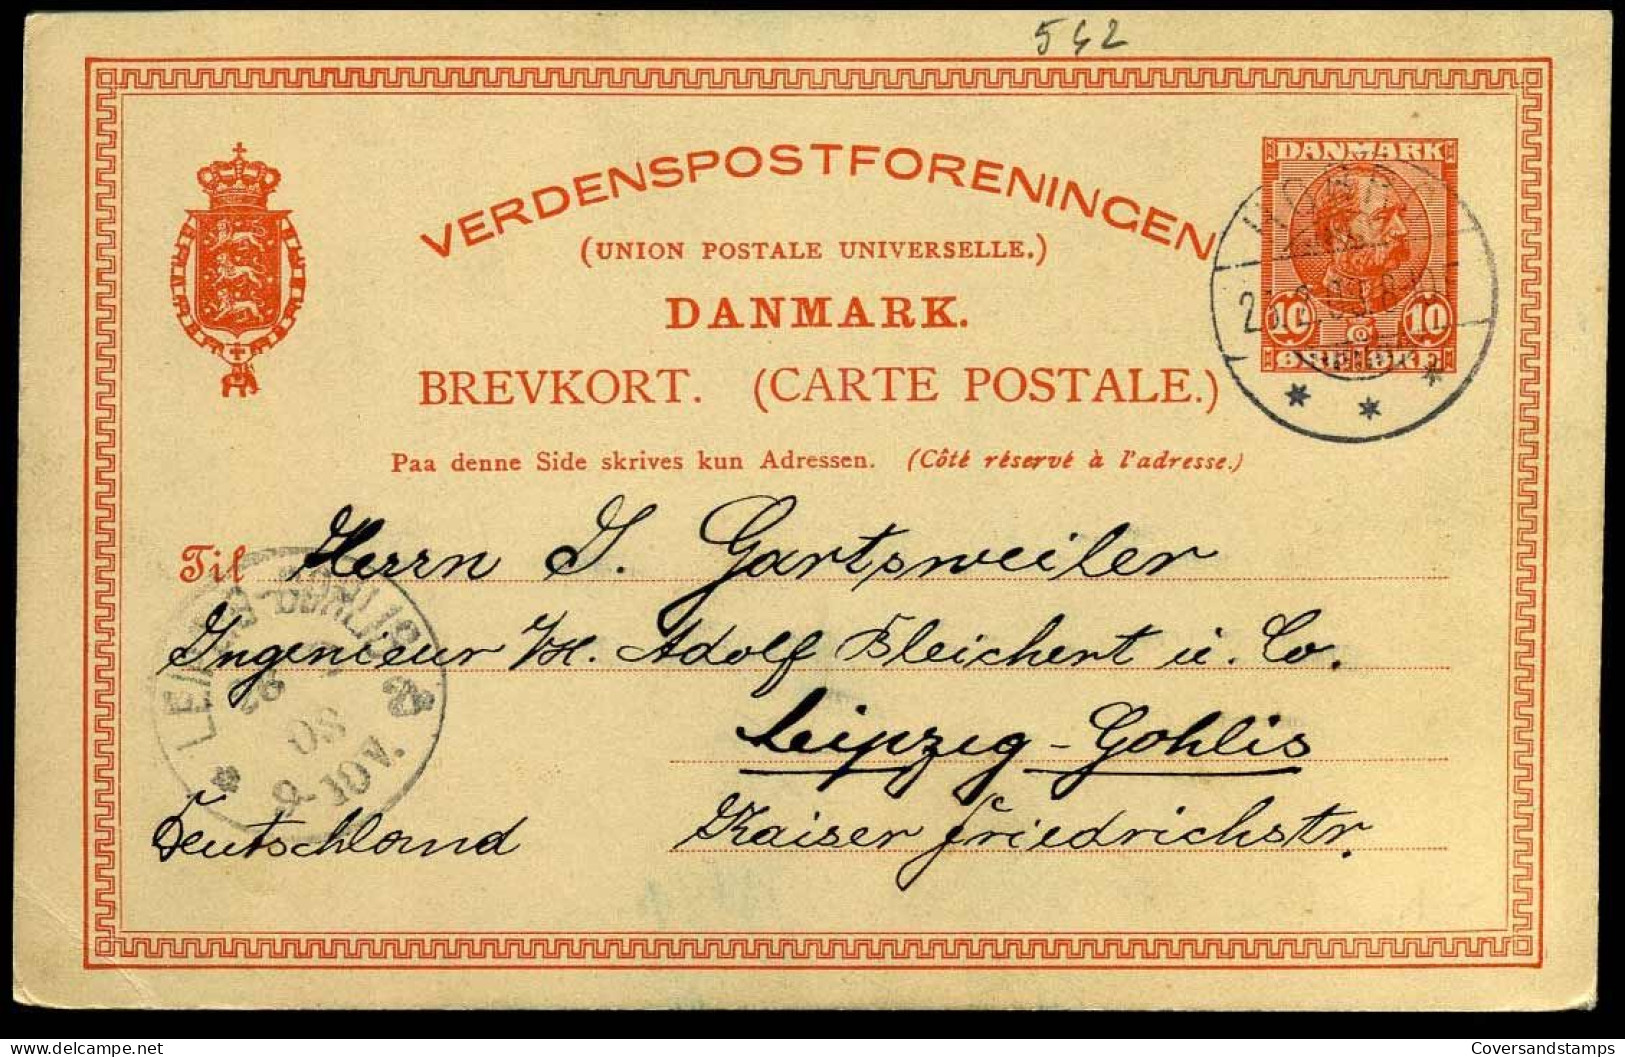 542
DANMARK
VERDENSPOSTFORENINGEN
(UNION POSTALE UNIVERSELLE.)
10 10
DANMARK.
BREVKORT. (CARTE POSTALE.)
Paa denne Side skrives kun Adressen. (Côté réservé à l'adresse.)
Til Herrn J. Gartsweiler
Ingenieur Adolf Bleichert u. Co.
Leipzig-Gohlis
08
9-10V.
Deutschland Kaiser Friedrichstr.
Coversandstamps